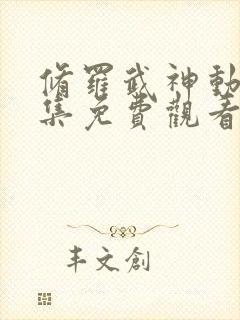 脩羅武神動
集免費觀看
丰文創